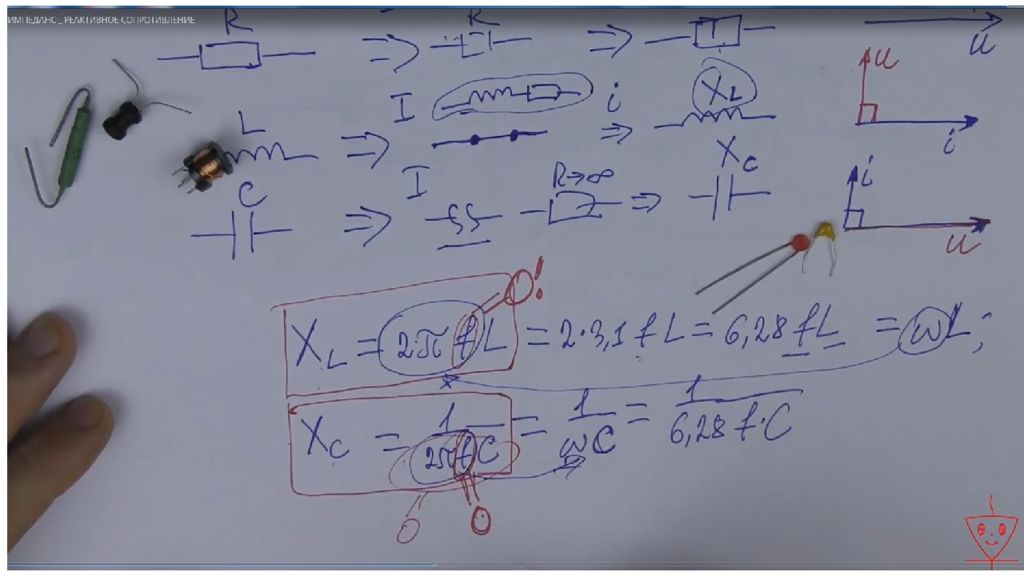 ИМПЕДАНС _ РЕАКТИВНОЕ СОПРОТИВЛЕНИЕ
R ⇒ R ⇒ u
L ⇒ I ⇒ i X_L u i
C ⇒ I R→∞ ⇒ X_C i u
X_L = 2πfL = 2·3,1fL = 6,28fL = ωL;
0!
X_C = 1/(2πfC) = 1/(ωC) = 1/(6,28f·C)
0 0